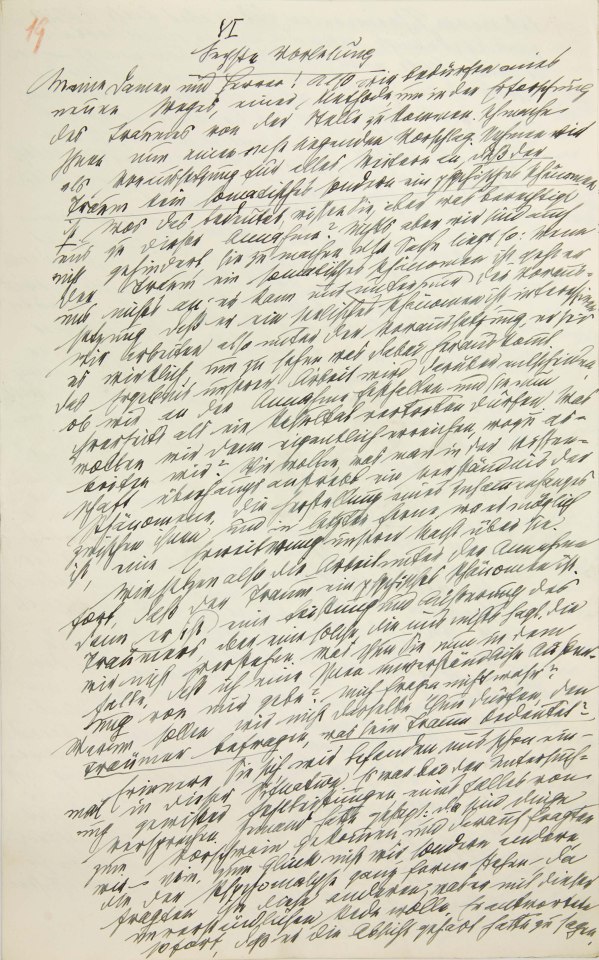 19
VI
Sechste Vorlesung
Meine Damen und Herren! Also wir bedürfen eines
neuen Weges, einer Methode um in der Erforschung
des Traumes von der Stelle zu kommen. Ich mache
Ihnen nun einen nahe liegenden Vorschlag. Nehmen wir
als Voraussetzung für alles Weitere an, daß der
Traum kein somatisches sondern ein psychisches Phänomen
ist. Was das bedeutet, wissen Sie, aber was berechtigt
uns zu dieser Annahme? Nichts aber wir sind auch
nicht gehindert, sie zu machen. Die Sache liegt so: Wenn
der Traum ein somatisches Phänomen ist, geht er
uns nichts an; er kann uns nur unter der Voraus-
setzung daß er ein seelisches Phänomen ist interessieren.
Wir arbeiten also unter der Voraussetzung, er sei
es wirklich, um zu sehen was dabei herauskommt.
Das Ergebnis unserer Arbeit wird darüber entscheiden,
ob wir an der Annahme festhalten und sie nun
ihrerseits als ein Resultat vertreten dürfen. Was
wollen wir denn eigentlich erreichen, wozu ar-
beiten wir? Wir wollen, was man in der Wissen-
schaft überhaupt anstrebt, ein Verständnis der
Phänomene, die Herstellung eines Zusammenhanges
zwischen ihnen, und in letzter Ferne, wo es möglich
ist, eine Erweiterung unserer Macht über sie.
Wir setzen also die Arbeit unter der Annahme
fort, daß der Traum ein psychisches Phänomen ist.
Dann ist er eine Leistung und Äußerung des
Träumers aber eine solche, die uns nichts sagt, die
wir nicht verstehen. Was tun Sie nun in dem
Falle, daß ich eine Ihnen unverständliche Äußer-
ung von mir gebe? Mich fragen nicht wahr?
Warum sollen wir nicht dasselbe thun dürfen, den
Träumer befragen, was sein Traum bedeutet?
Erinnern Sie sich wir befanden uns schon ein-
mal in dieser Situation. Es war bei der Untersuch-
ung gewisser Fehlleistungen eines Falles von
Versprechen. Jemand hatte gesagt: da sind Dinge
zum Vorschwein gekommen und darauf fragten
wir – nein, zum Glück nicht wir, sondern andere
die der Psychoanalyse ganz ferne stehen – da
fragten ihn diese anderen, was er mit dieser
unverständlichen Rede wolle. Er antwortete
sofort, daß er die Absicht gehabt hatte zu sagen